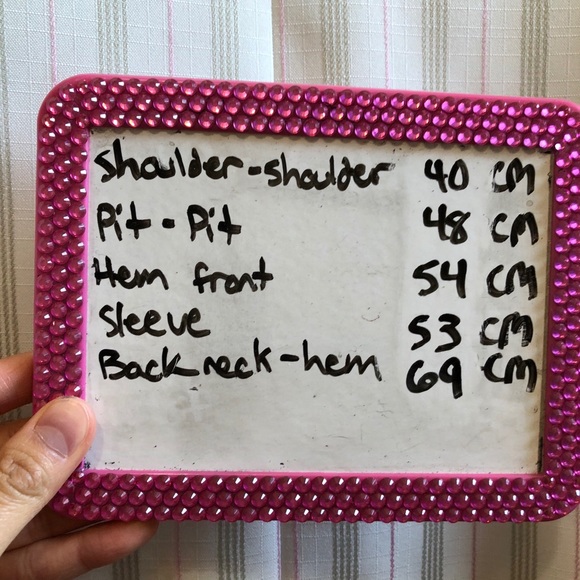 Shoulder-shoulder 40 CM
Pit-Pit 48 CM
Hem front 54 CM
Sleeve 53 CM
Back neck-hem 69 CM